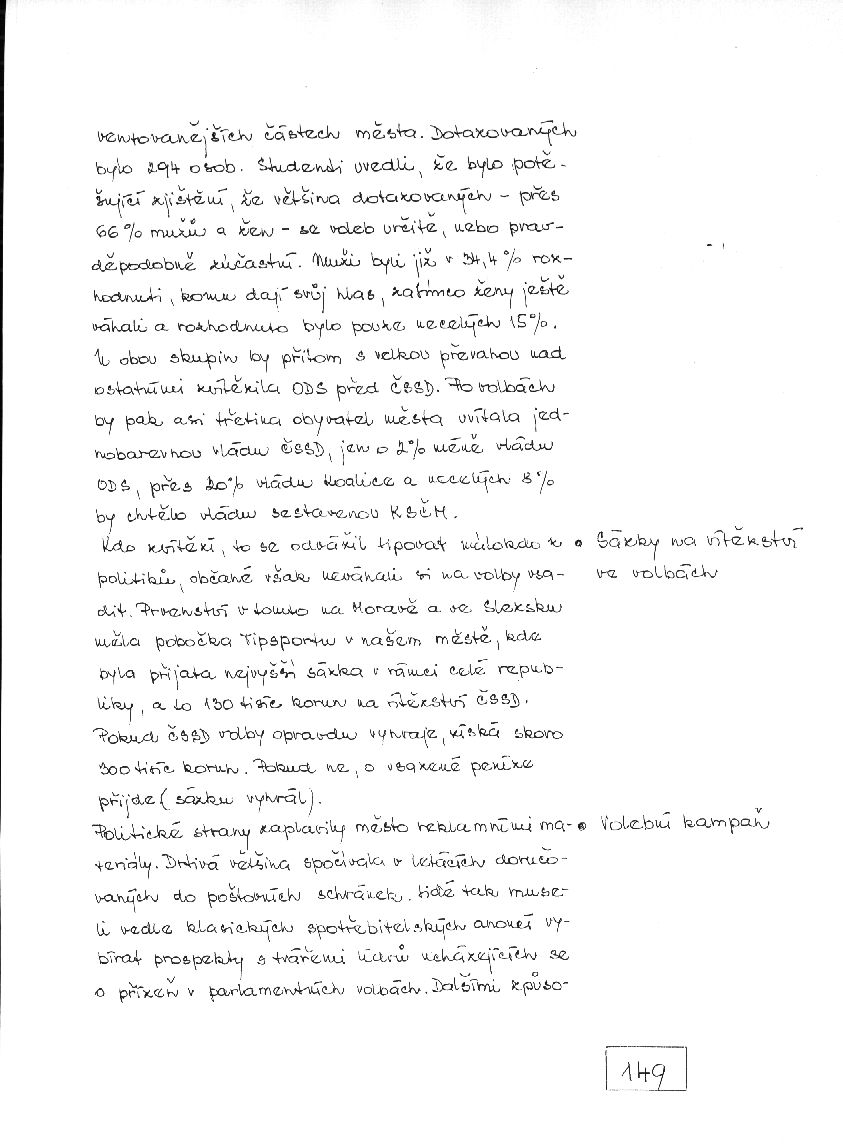 ventovanějších částech města. Dotazovaných
bylo 294 osob. Studenti uvedli, že bylo potě-
šující zjištění, že většina dotazovaných - přes
66 % mužů a žen - se voleb určitě, nebo prav-
děpodobně zúčastní. Muži byli již v 34,4 % roz-
hodnuti, komu dají svůj hlas, zatímco ženy ještě
váhali a rozhodnuto bylo pouze necelých 15%.
U obou skupin by přitom s velkou převahou nad
ostatními zvítězila ODS před ČSSD. Po volbách
by pak asi třetina obyvatel města uvítala jed-
nobarevnou vládu ČSSD, jen o 2% méně vládu
ODS, přes 20% vládu Koalice a necelých 8%
by chtělo vládu sestavenou KSČM.
Kdo zvítězí, to se odvážil tipovat málokdo z
• Sázky na vítězství
politiků, občané však neváhali si na volby vsa-
ve volbách
dit. Prvenství v tomto na Moravě a ve Slezsku
měla pobočka Tipsportu v našem městě, kde
byla přijata nejvyšší sázka v rámci celé repub-
liky, a to 130 tisíc korun na vítězství ČSSD.
Pokud ČSSD volby opravdu vyhraje, získá skoro
300 tisíc korun. Pokud ne, o vsazené peníze
přijde (sázku vyhrál).
Politické strany zaplavily město reklamními ma-
• Volební kampaň
teriály. Drtivá většina spočívala v letácích doručo-
vaných do poštovních schránek. Lidé tak muse-
li vedle klasických spotřebitelských anoncí vy-
bírat prospekty s tvářemi lídrů ucházejících se
o přízeň v parlamentních volbách. Dalšími způso-
149